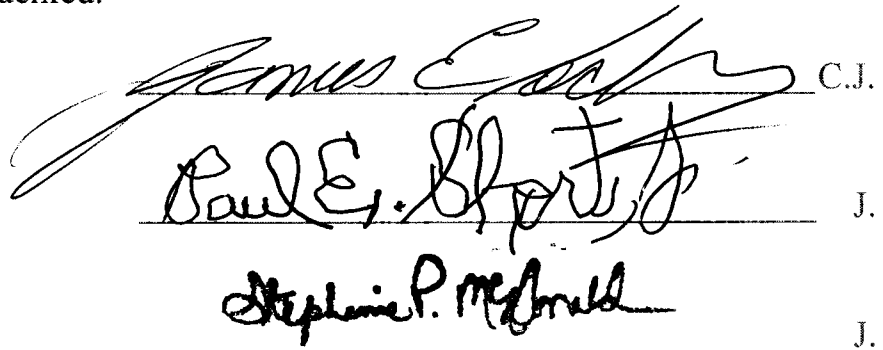 James E. Lockemy C.J.
Paul E. Short, Jr. J.
Stephanie P. McDonald
J.